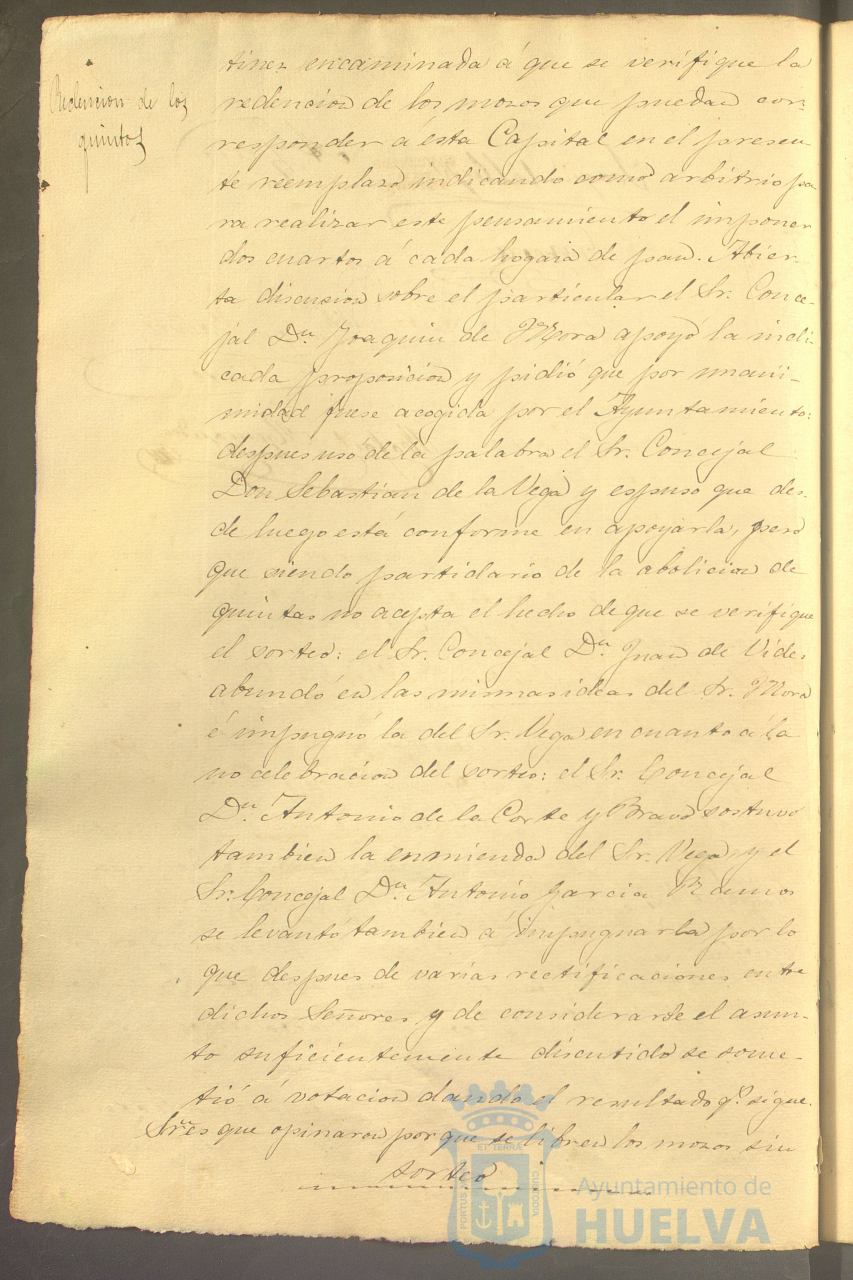 Redencion de los
quintos
tinez encaminada á que se verifique la
redencion de los mozos que puedan cor-
responder a esta Capital en el presen-
te reemplazo indicando como arbitrio pa
ra realizar este pensamiento el imponer
dos cuartos á cada hogaza de pan. Abier-
ta discusion sobre el particular el Sr. Conce-
jal Dn Joaquin de Mora apoyó la indi-
cada proposicion y pidió que por unani-
midad fuese acogida por el Ayuntamiento:
despues uso de la palabra el Sr. Concejal
Don Sebastian de la Vega y espuso que des-
de luego está conforme en apoyarla, pero
que siendo partidario de la abolicion de
quintas no acepta el hecho de que se verifique
el sorteo: el Sr. Concejal Dn Juan de Vides
abundó en las mismas ideas del Sr. Mora
é impugnó la del Sr. Vega en cuanto a la
no celebracion del sorteo: el Sr. Concejal
Dn Antonio de la Corte y Bravo sostuvo
tambien la enmienda del Sr. Vega, y el
Sr. Concejal Dn Antonio Garcia Ramos
se levantó tambien á impugnarla por lo
que despues de varias rectificaciones entre
dichos Señores y de considerarse el asun-
to suficientemente discutido se some-
tió á votacion dando el resultado q.e sigue.
Sres que opinaron por que se libren los mozos sin
sorteo
ET TERRÆ
PORTUS
CUSTODIA
Ayuntamiento de
HUELVA